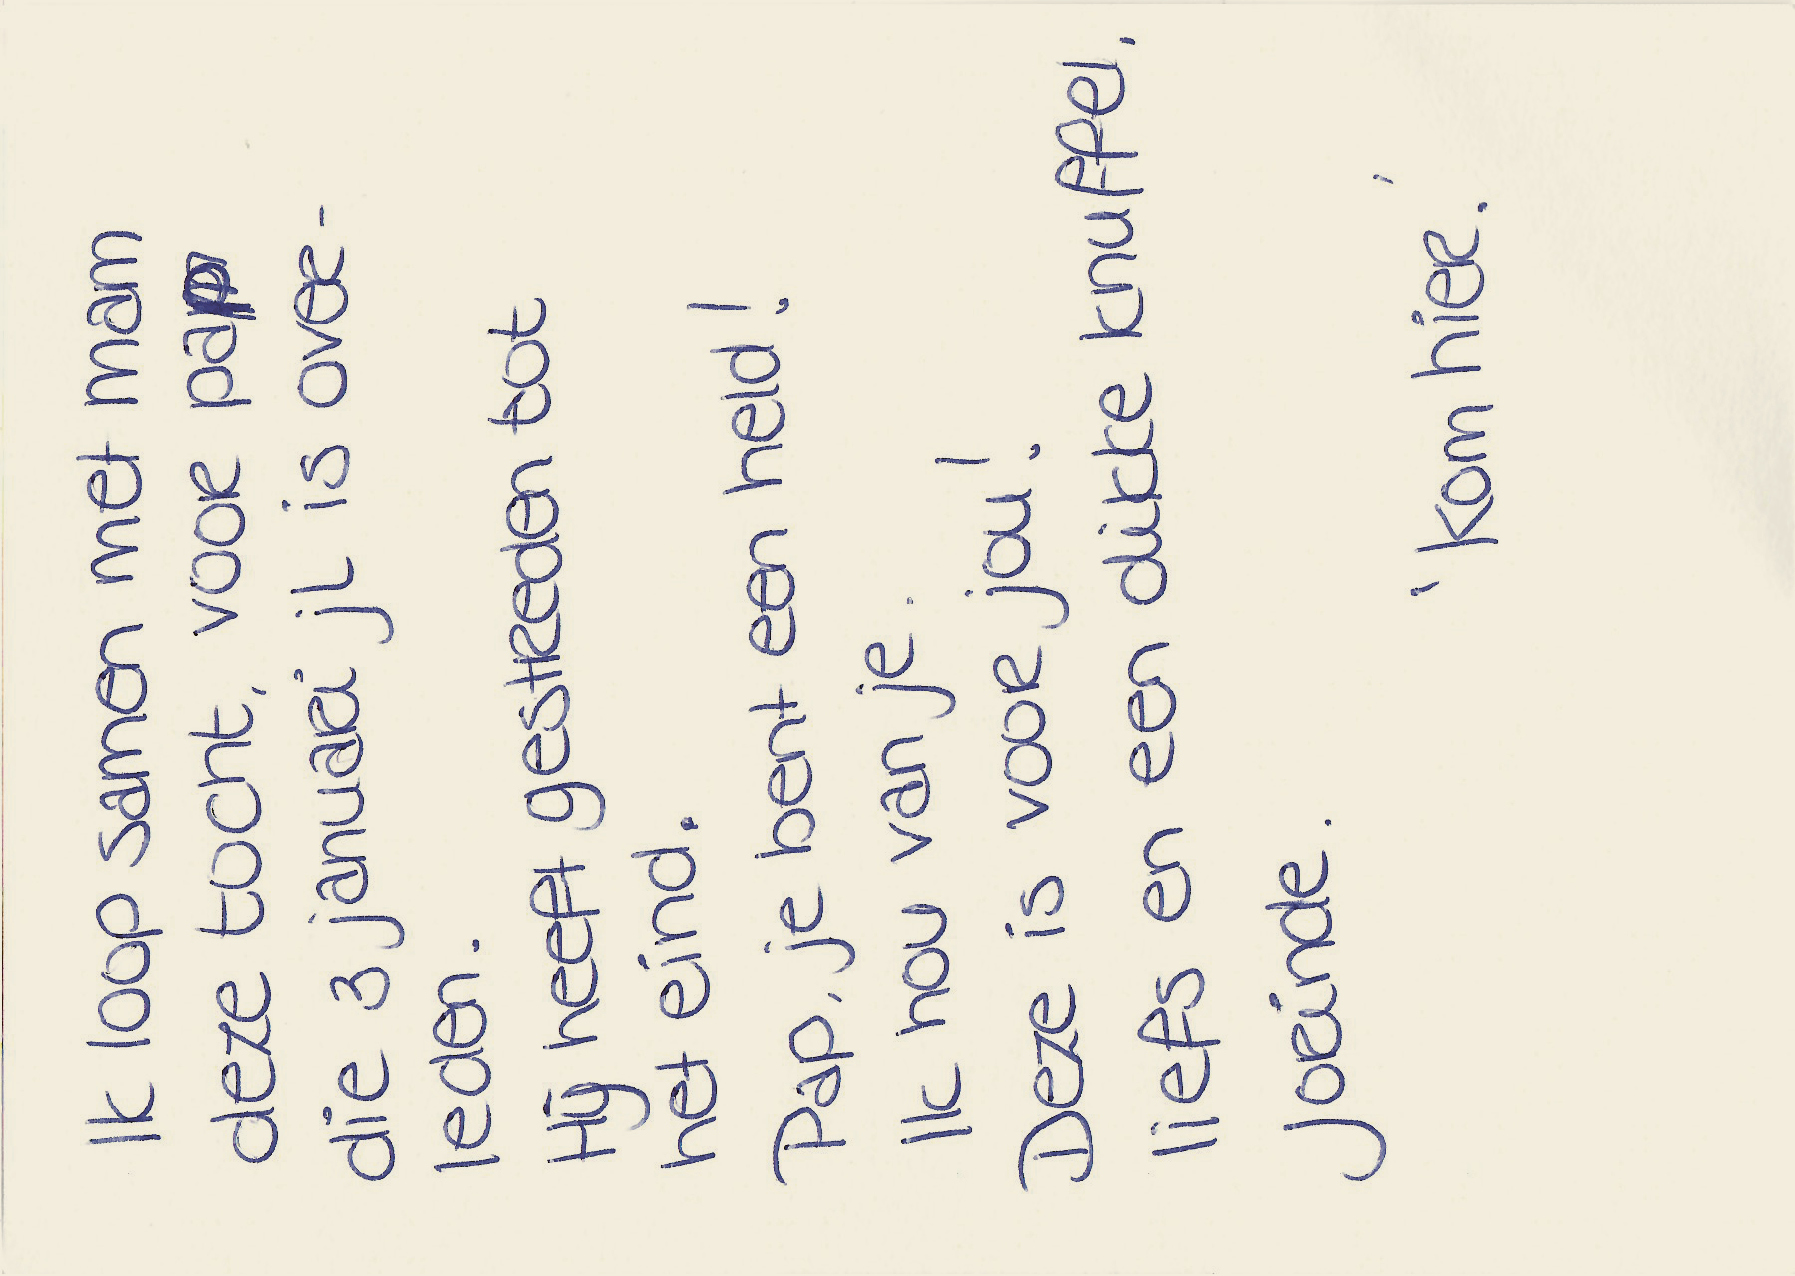 Ik loop samen met mam
deze tocht, voor pap
die 3 januari jl is over-
leden.
Hij heeft gestreden tot
het eind.
Pap, je bent een held!
Ik hou van je.
Deze is voor jou!
liefs en een dikke knuffel.
Jorinde.
'Kom hier.'